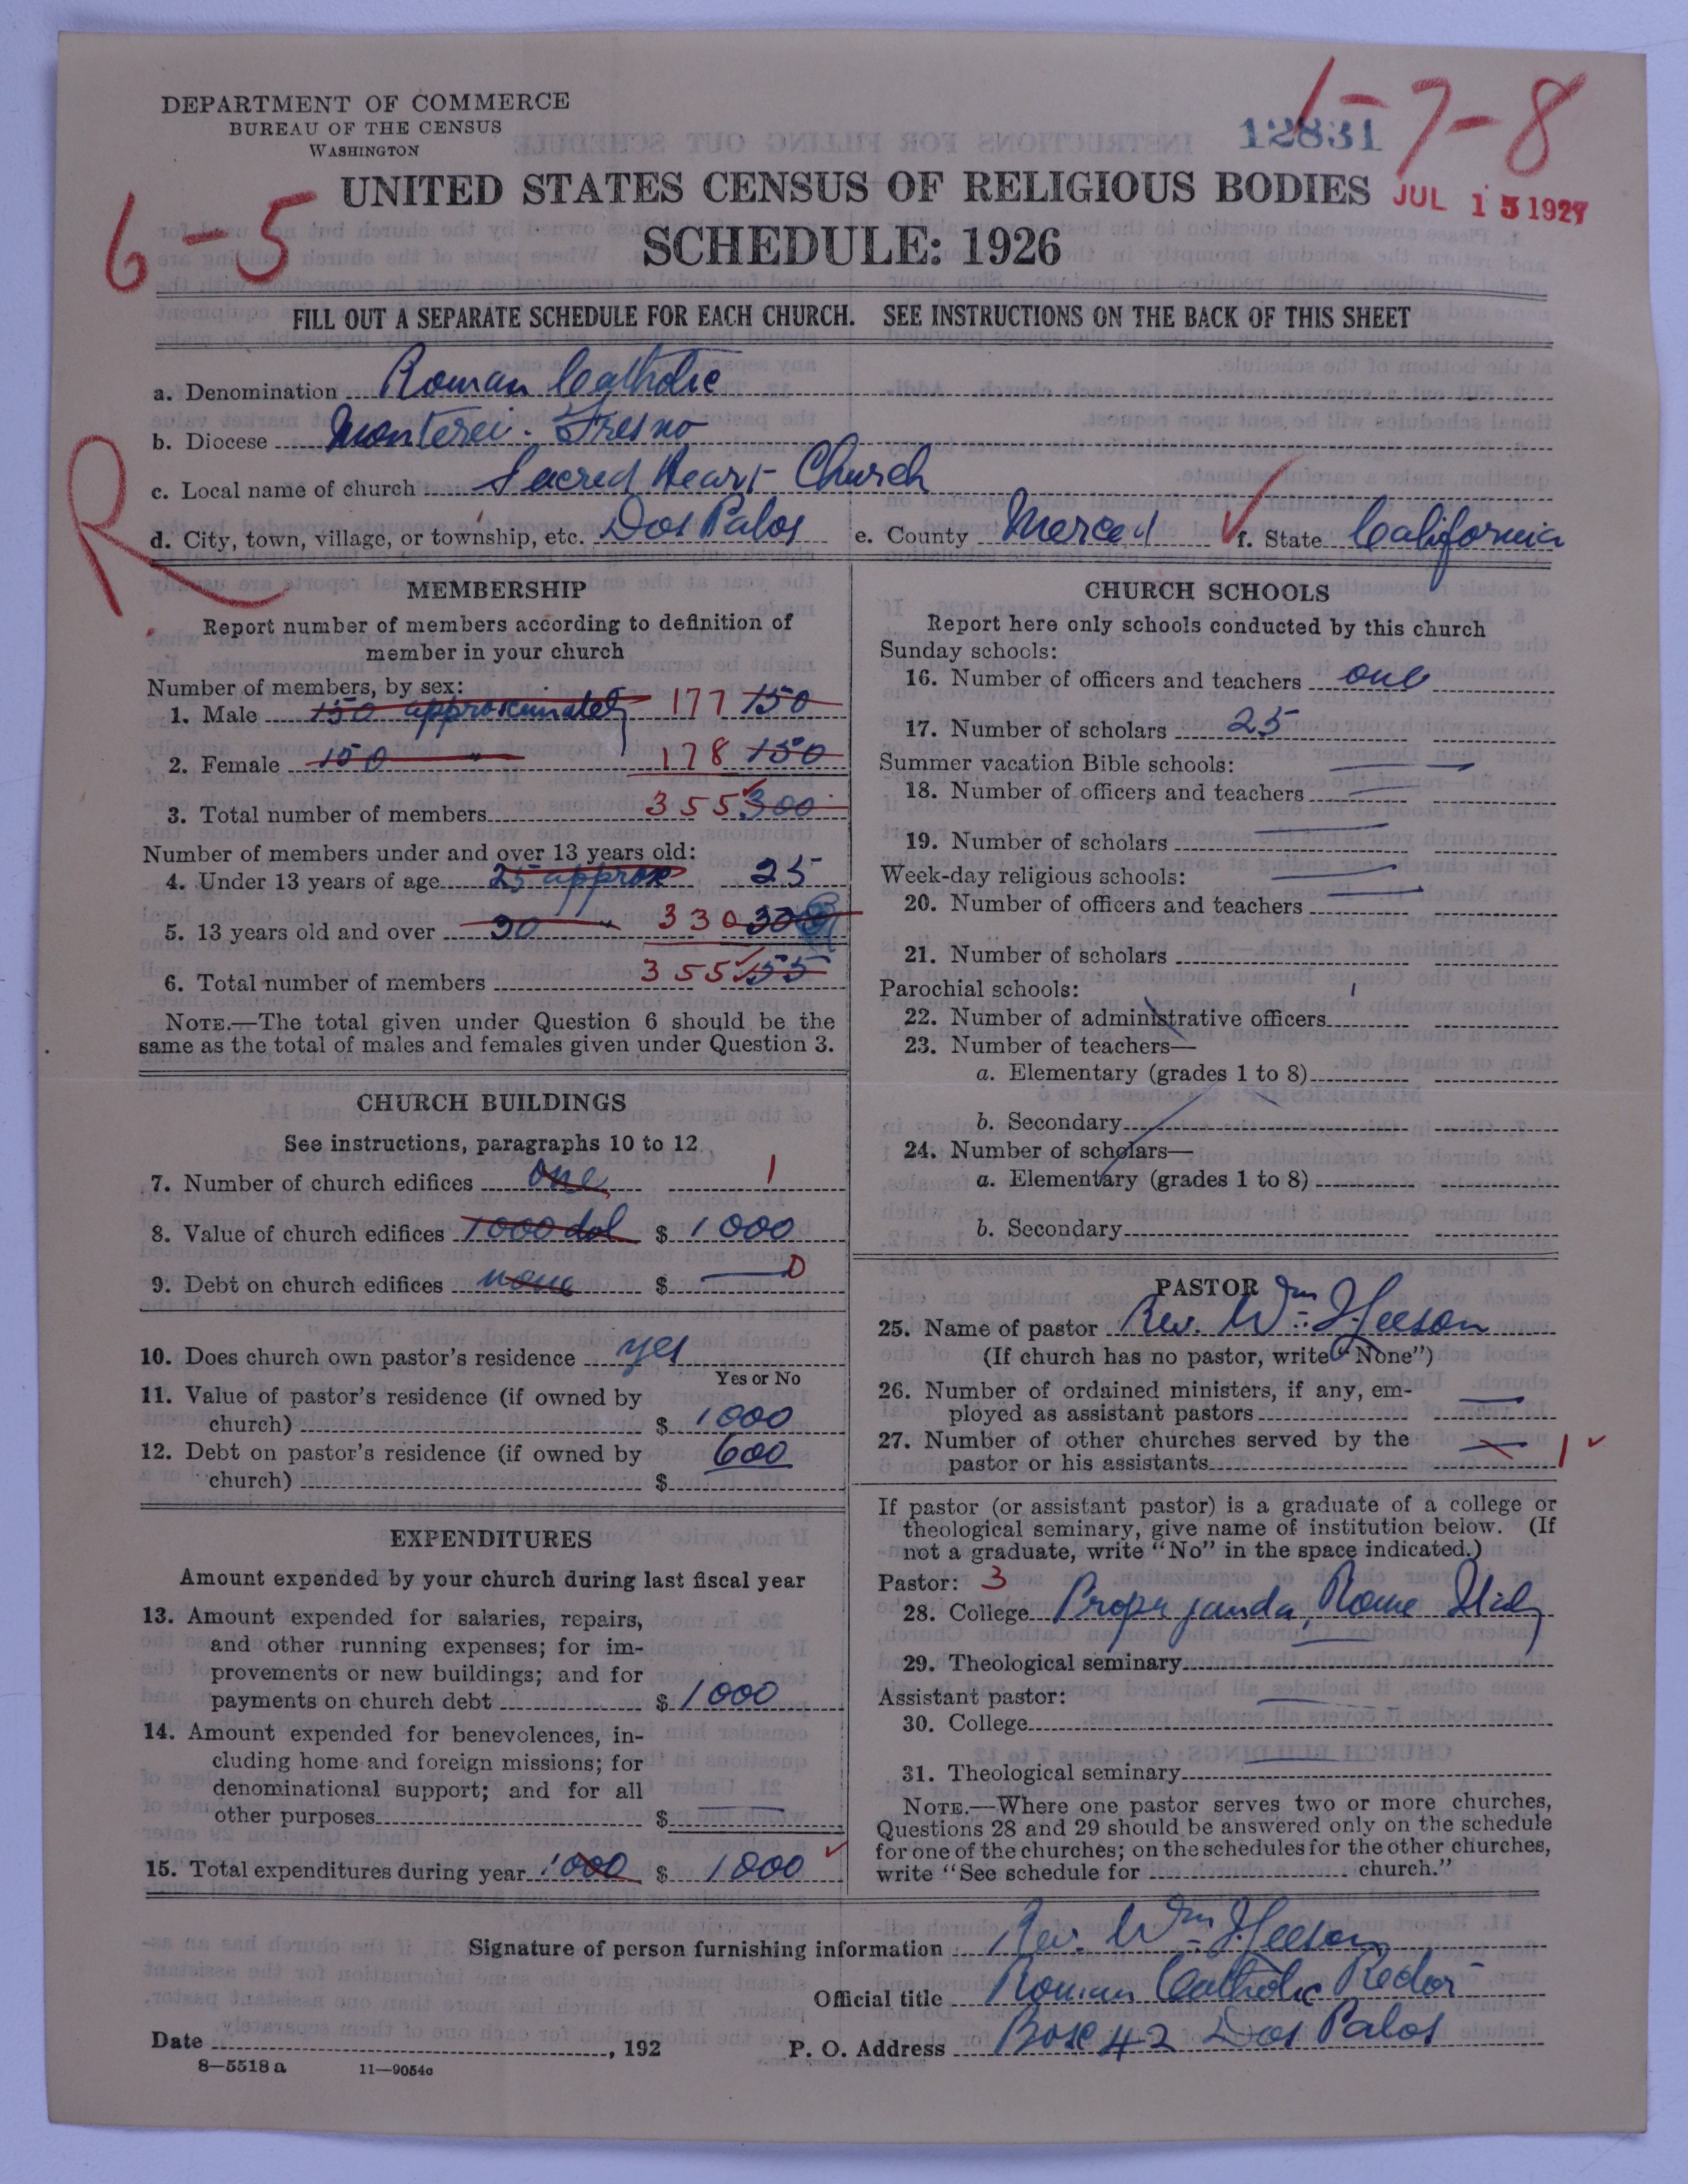 DEPARTMENT OF COMMERCE
BUREAU OF THE CENSUS
WASHINGTON
12831
1-7-8
UNITED STATES CENSUS OF RELIGIOUS BODIES
JUL 15 1927
6-5
SCHEDULE: 1926
FILL OUT A SEPARATE SCHEDULE FOR EACH CHURCH. SEE INSTRUCTIONS ON THE BACK OF THIS SHEET
a. Denomination Roman Catholic
b. Diocese Monterei - Fresno
R
c. Local name of church Sacred Heart Church
d. City, town, village, or township, etc. Dos Palos e. County Merced f. State California
MEMBERSHIP
Report number of members according to definition of
member in your church
Number of members, by sex:
1. Male 150 approximately 177 150
2. Female 150 " 178 150
3. Total number of members 355 300
Number of members under and over 13 years old:
4. Under 13 years of age 25 approx 25
5. 13 years old and over 30 " 330 300
6. Total number of members 355 155
NOTE.—The total given under Question 6 should be the
same as the total of males and females given under Question 3.
CHURCH BUILDINGS
See instructions, paragraphs 10 to 12
7. Number of church edifices one 1
8. Value of church edifices 1000 dol $ 1000
9. Debt on church edifices none $ — 0
10. Does church own pastor's residence yes
Yes or No
11. Value of pastor's residence (if owned by
church) $ 1000
12. Debt on pastor's residence (if owned by
church) $ 600
EXPENDITURES
Amount expended by your church during last fiscal year
13. Amount expended for salaries, repairs,
and other running expenses; for im-
provements or new buildings; and for
payments on church debt $ 1000
14. Amount expended for benevolences, in-
cluding home and foreign missions; for
denominational support; and for all
other purposes $ —
15. Total expenditures during year 1000 $ 1000
CHURCH SCHOOLS
Report here only schools conducted by this church
Sunday schools:
16. Number of officers and teachers one
17. Number of scholars 25
Summer vacation Bible schools:
18. Number of officers and teachers
19. Number of scholars
Week-day religious schools:
20. Number of officers and teachers
21. Number of scholars
Parochial schools:
22. Number of administrative officers
23. Number of teachers—
a. Elementary (grades 1 to 8)
b. Secondary
24. Number of scholars—
a. Elementary (grades 1 to 8)
b. Secondary
PASTOR
25. Name of pastor Rev. Wm. J. Heeson
(If church has no pastor, write "None")
26. Number of ordained ministers, if any, em-
ployed as assistant pastors —
27. Number of other churches served by the
pastor or his assistants — 1
If pastor (or assistant pastor) is a graduate of a college or
theological seminary, give name of institution below. (If
not a graduate, write "No" in the space indicated.)
Pastor: 3
28. College Propaganda, Rome Italy
29. Theological seminary
Assistant pastor:
30. College
31. Theological seminary
NOTE.—Where one pastor serves two or more churches,
Questions 28 and 29 should be answered only on the schedule
for one of the churches; on the schedules for the other churches,
write "See schedule for church."
Signature of person furnishing information Rev. Wm. J. Heeson
Official title Roman Catholic Rector
Date , 192 P. O. Address Box 42 Dos Palos
8—5518 a 11—9054c